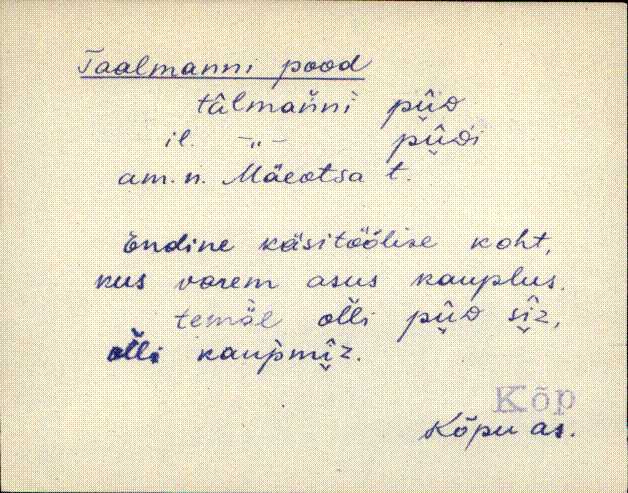 Taalmanni pood
tālmańni pūD
il. –„– pūDi
am. n. Mäeotsa t.
Endine käsitöölise koht,
kus varem asus kauplus.
temäl oĺli pūD sīz,
oĺli kaupmīz.
Kõp
Kõpu as.